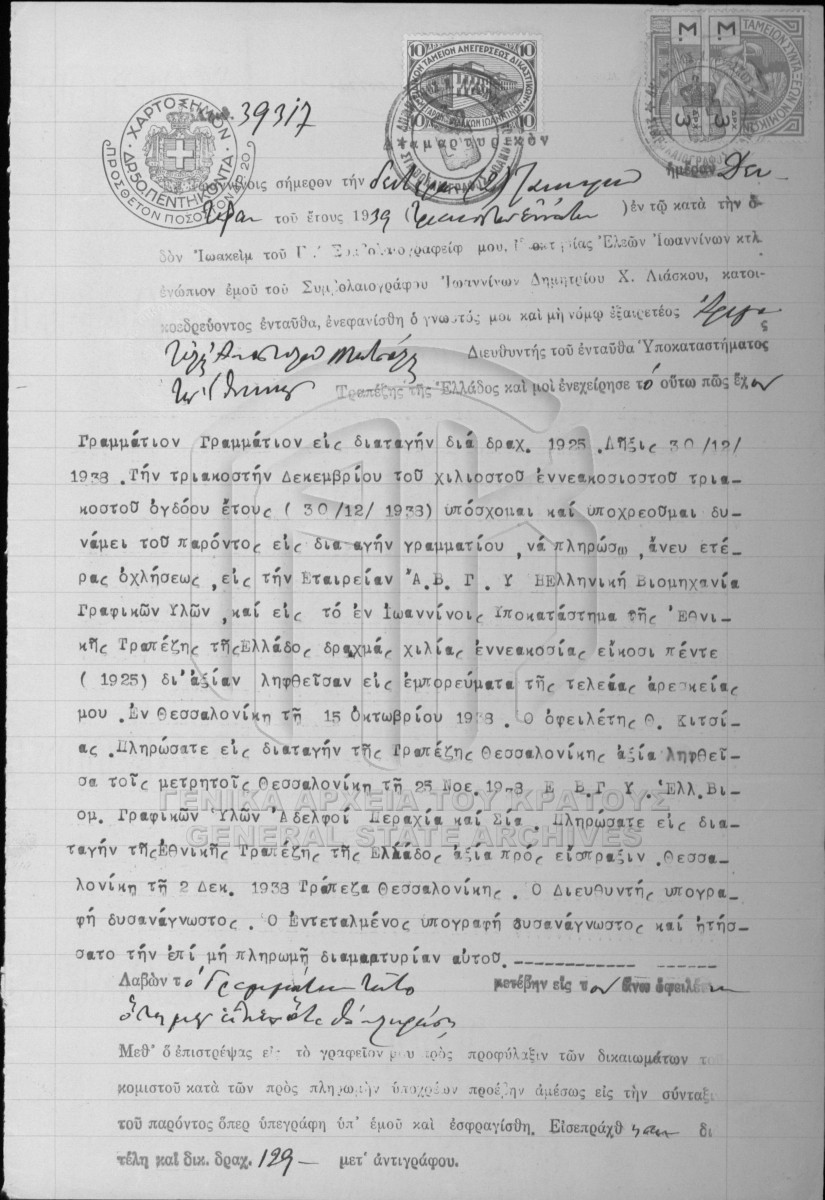 39317
ΧΑΡΤΟΣΗΜΟΝ
ΔΡ50ΠΕΝΤΗΚΟΝΤΑ
ΠΡΟΣΘΕΤΟΝ ΠΟΣΟΣΤΟΝ
10 10
10 10
Μ. Μ.
3 3
ΤΑΜΕΙΟΝ ΣΥΝΤΑΞΕΩΝ ΝΟΜΙΚΩΝ
Διαμαρτυρικὸν
σήμερον τὴν ἡμέραν Δευ-
τέραν τοῦ ἔτους 1939 ( ) ἐν τῷ κατὰ τὴν ὁ-
δὸν Ἰωακεὶμ τοῦ Γ΄ Συμβολαιογραφείῳ μου, Ἐλεῶν Ἰωαννίνων κτλ
ἐνώπιον ἐμοῦ τοῦ Συμβολαιογράφου Ἰωαννίνων Δημητρίου Χ. Λιάσκου, κατοι-
κοεδρεύοντος ἐνταῦθα, ἐνεφανίσθη ὁ γνωστός μοι καὶ μὴ νόμῳ ἐξαιρετέος
Διευθυντής τοῦ ἐνταῦθα Ὑποκαταστήματος
τῆς Ἐθνικῆς Τραπέζης τῆς Ἑλλάδος καὶ μοὶ ἐνεχείρησε τὸ οὕτω πῶς ἔχον
Γραμμάτιον Γραμμάτιον εἰς διαταγήν διά δραχ. 1925 .Λῆξις 30/12/
1938 .Τήν τριακοστήν Δεκεμβρίου τοῦ χιλιοστοῦ ἐννεακοσιοστοῦ τρια-
κοστοῦ ὀγδόου ἔτους ( 30/12/ 1938) ὑπόσχομαι καί ὑποχρεοῦμαι δυ-
νάμει τοῦ παρόντος εἰς διαταγήν γραμματίου ,νά πληρώσω ,ἄνευ ετέ-
ρας ὀχλήσεως ,εἰς τήν Εταιρείαν Ἀ.Β. Γ. Υ ΒΕλληνική Βιομηχανία
Γραφικῶν Υλῶν ,καί εἰς τό ἐν Ἰωαννίνοις Υποκατάστημα τῆς Ἐθνι-
κῆς Τραπέζης τῆςΕλλάδος δραχμάς χιλίας ἐννεακοσίας εἴκοσι πέντε
( 1925) δι'ἀξίαν ληφθεῖσαν εἰς ἐμπορεύματα τῆς τελεάς ἀρεσκείας
μου .Εν Θεσσαλονίκη τῆ 15 ὀκτωβρίου 1938 . Ο ὀφειλέτης Θ. Κιτσί-
ας .Πληρώσατε εἰς διαταγήν τῆς Τραπέζης Θεσσαλονίκης ἀξία ληφθεῖ-
σα τοῖς μετρητοῖς Θεσσαλονίκη τῆ 25 Νοε .1938 Ε Β.Γ Υ .Ελλ.Βι-
ομ. Γραφικῶν Ὑλῶν Ἀδελφοί Περαχία καί Σία .Πληρωσατε εἰς δια-
ταγήν τῆςἘθνικῆς Τραπέζης τῆς Ελλάδος ἀξία πρός εἴσπραξιν .Θεσσα-
λονίκη τῆ 2 Δεκ. 1938 Τράπεζα Θεσσαλονίκης . Ο Διευθυντής υπογρα-
φή δυσανάγνωστος . Ο Εντεταλμένος υπογραφή δυσανάγνωστος καί ἠτήσ-
σατο τήν ἐπί μή πληρωμῆ διαμαρτυρίαν αὐτοῦ.
Λαβὼν τὸ γραμμάτιον τοῦτο μετέβην εἰς τὸν ἄνω ὀφειλέτην
Μεθ᾽ ὃ ἐπιστρέψας εἰς τὸ γραφεῖον μου πρὸς προφύλαξιν τῶν δικαιωμάτων το
κομιστοῦ κατὰ τῶν πρὸς πληρωμὴν ὑποχρέων προέβην ἀμέσως εἰς τὴν σύνταξι
τοῦ παρόντος ὅπερ ὑπεγράφη ὑπ᾽ ἐμοῦ καὶ ἐσφραγίσθη. Εἰσεπράχθησαν δι
τέλη καὶ δικ. δραχ. 129 – μετ᾽ ἀντιγράφου.
ΓΕΝΙΚΑ ΑΡΧΕΙΑ ΤΟΥ ΚΡΑΤΟΥΣ
GENERAL STATE ARCHIVES